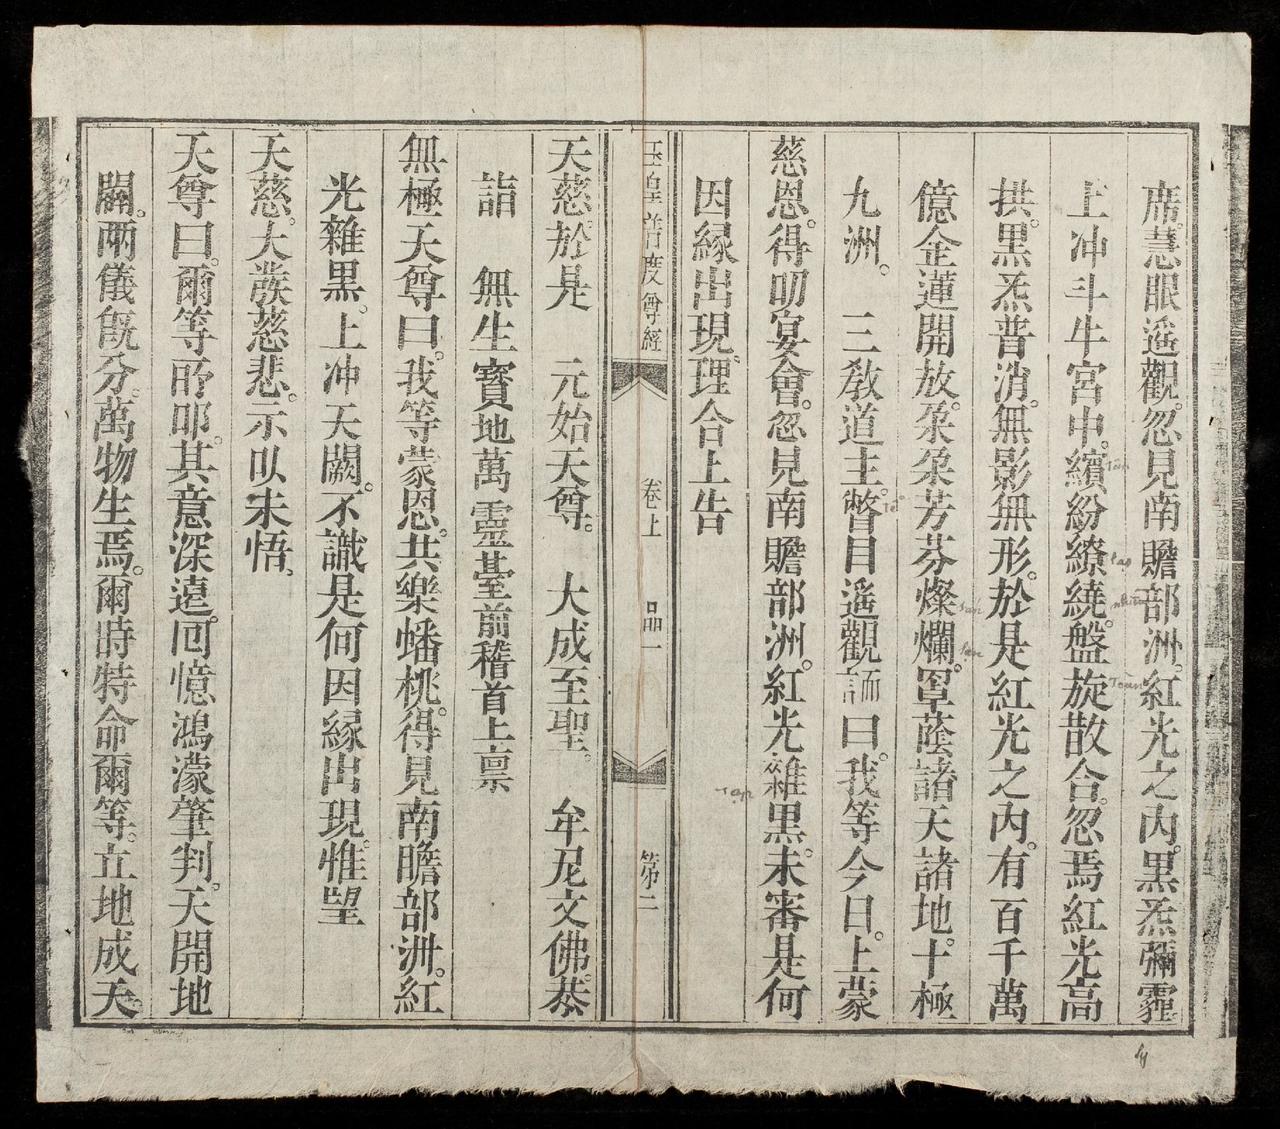 席。慧眼遥觀。忽見南贍部洲。紅光之内。黒炁彌霾
上冲斗牛宮中。繽紛繚繞。盤旋散合。忽焉紅光高
拱。黒炁普消。無影無形。於是紅光之内。有百千萬
億金蓮開放。朶朶芳芬燦爛。罩蔭諸天諸地。十極
九洲。 三敎道主。瞥目遥觀 曰。我等今日。上蒙
慈恩。得叨宴會。忽見南贍部洲。紅光雜黒。未審是何
因緣出現。理合上告
玉皇普度尊經 卷上 品一 第二
天慈。於是 元始天尊。 大成至聖。 牟尼文佛。恭
詣 無生寳地萬靈臺前稽首上禀
無極天尊曰。我等蒙恩。共樂蟠桃。得見南贍部洲。紅
光雜黒。上冲天闕。不識是何因緣出現。惟望
天慈。大發慈悲。示以未悟。
天尊曰。爾等所叩。其意深遠。囘憶鴻濛肇判。天開地
闢。兩儀旣分。萬物生焉。爾時特命爾等。立地成天。
Tân
tạp
nhiễu
Toàn
sán
lan
Tạp